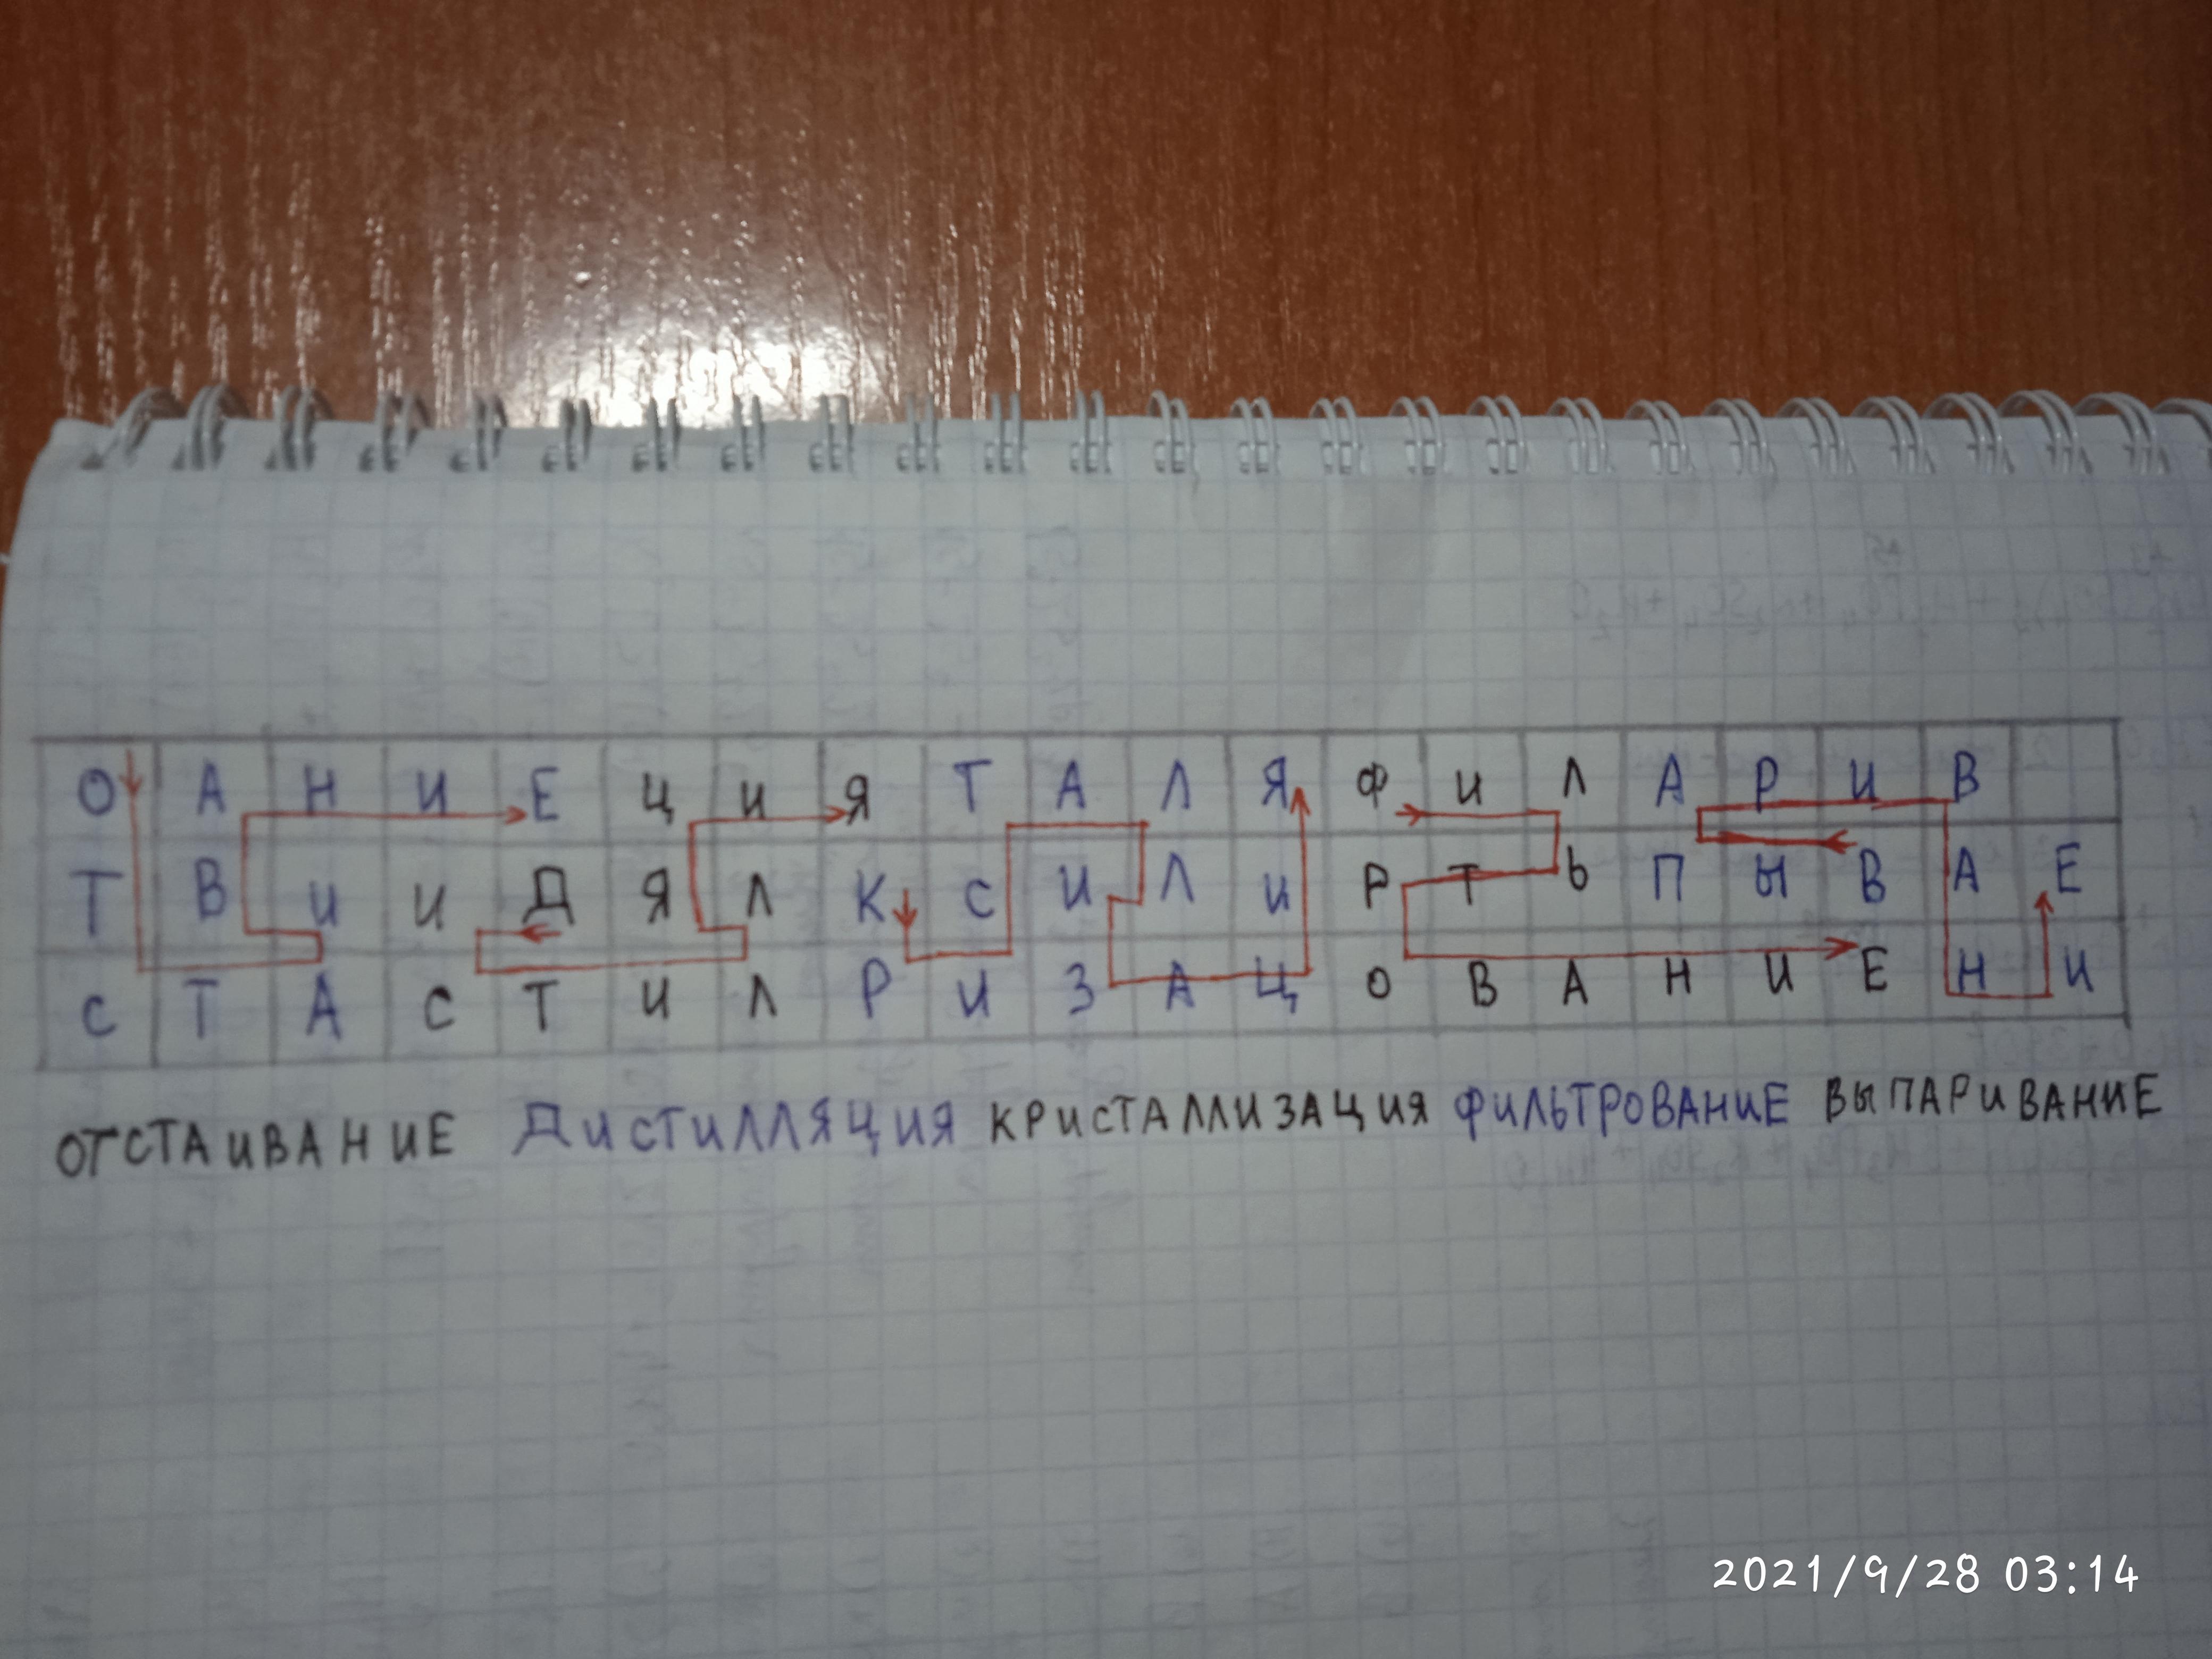 О А Н И Е Ц И Я Т А Л Я Ф И Л А Р И В
Т В И И Д Я Л К С И Л И Р Т Ь П Ы В А Е
С Т А С Т И Л Р И З А Ц О В А Н И Е Н И
ОТСТАИВАНИЕ ДИСТИЛЛЯЦИЯ КРИСТАЛЛИЗАЦИЯ ФИЛЬТРОВАНИЕ ВЫПАРИВАНИЕ
2021/9/28 03:14